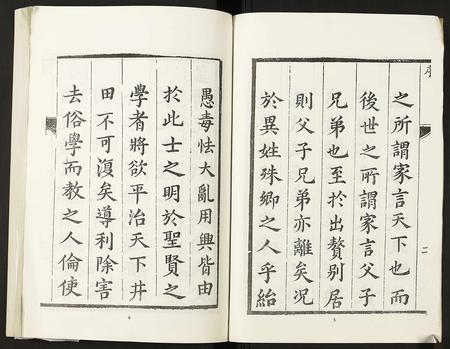 之所謂家言天下也而
後世之所謂家言父子
兄弟也至於出贅别居
則父子兄弟亦離矣况
於異姓殊鄉之人乎紿
愚毒怯大亂用興皆由
於此士之明於聖賢之
學者將欲平治天下井
田不可復矣導利除害
去俗學而教之人倫使